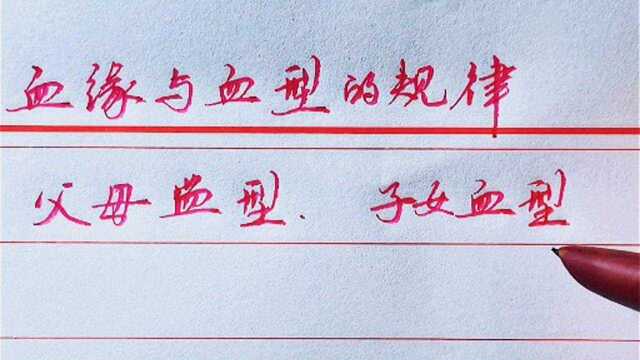 血缘与血型的规律
父母血型、子女血型